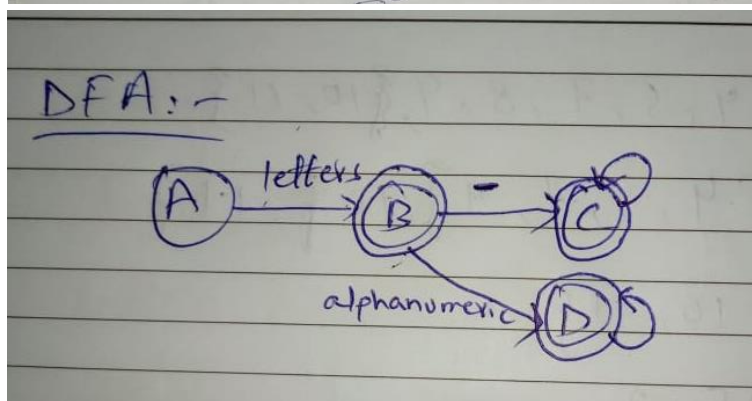 DFA:-
letters
A B - C
alphanumeric D